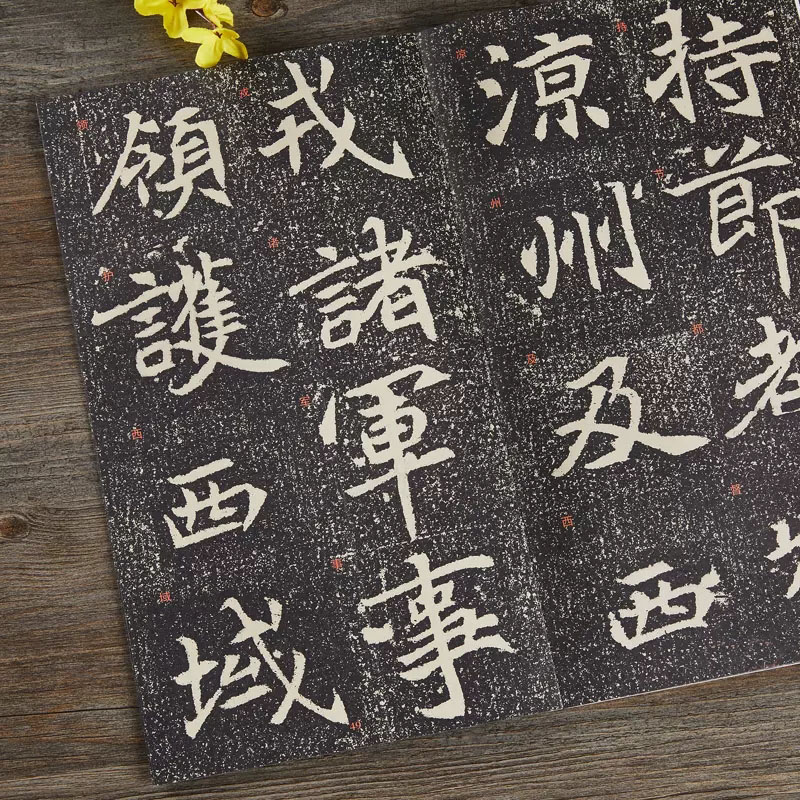 持節都督
涼州及西
戎諸軍事
領護西域
49